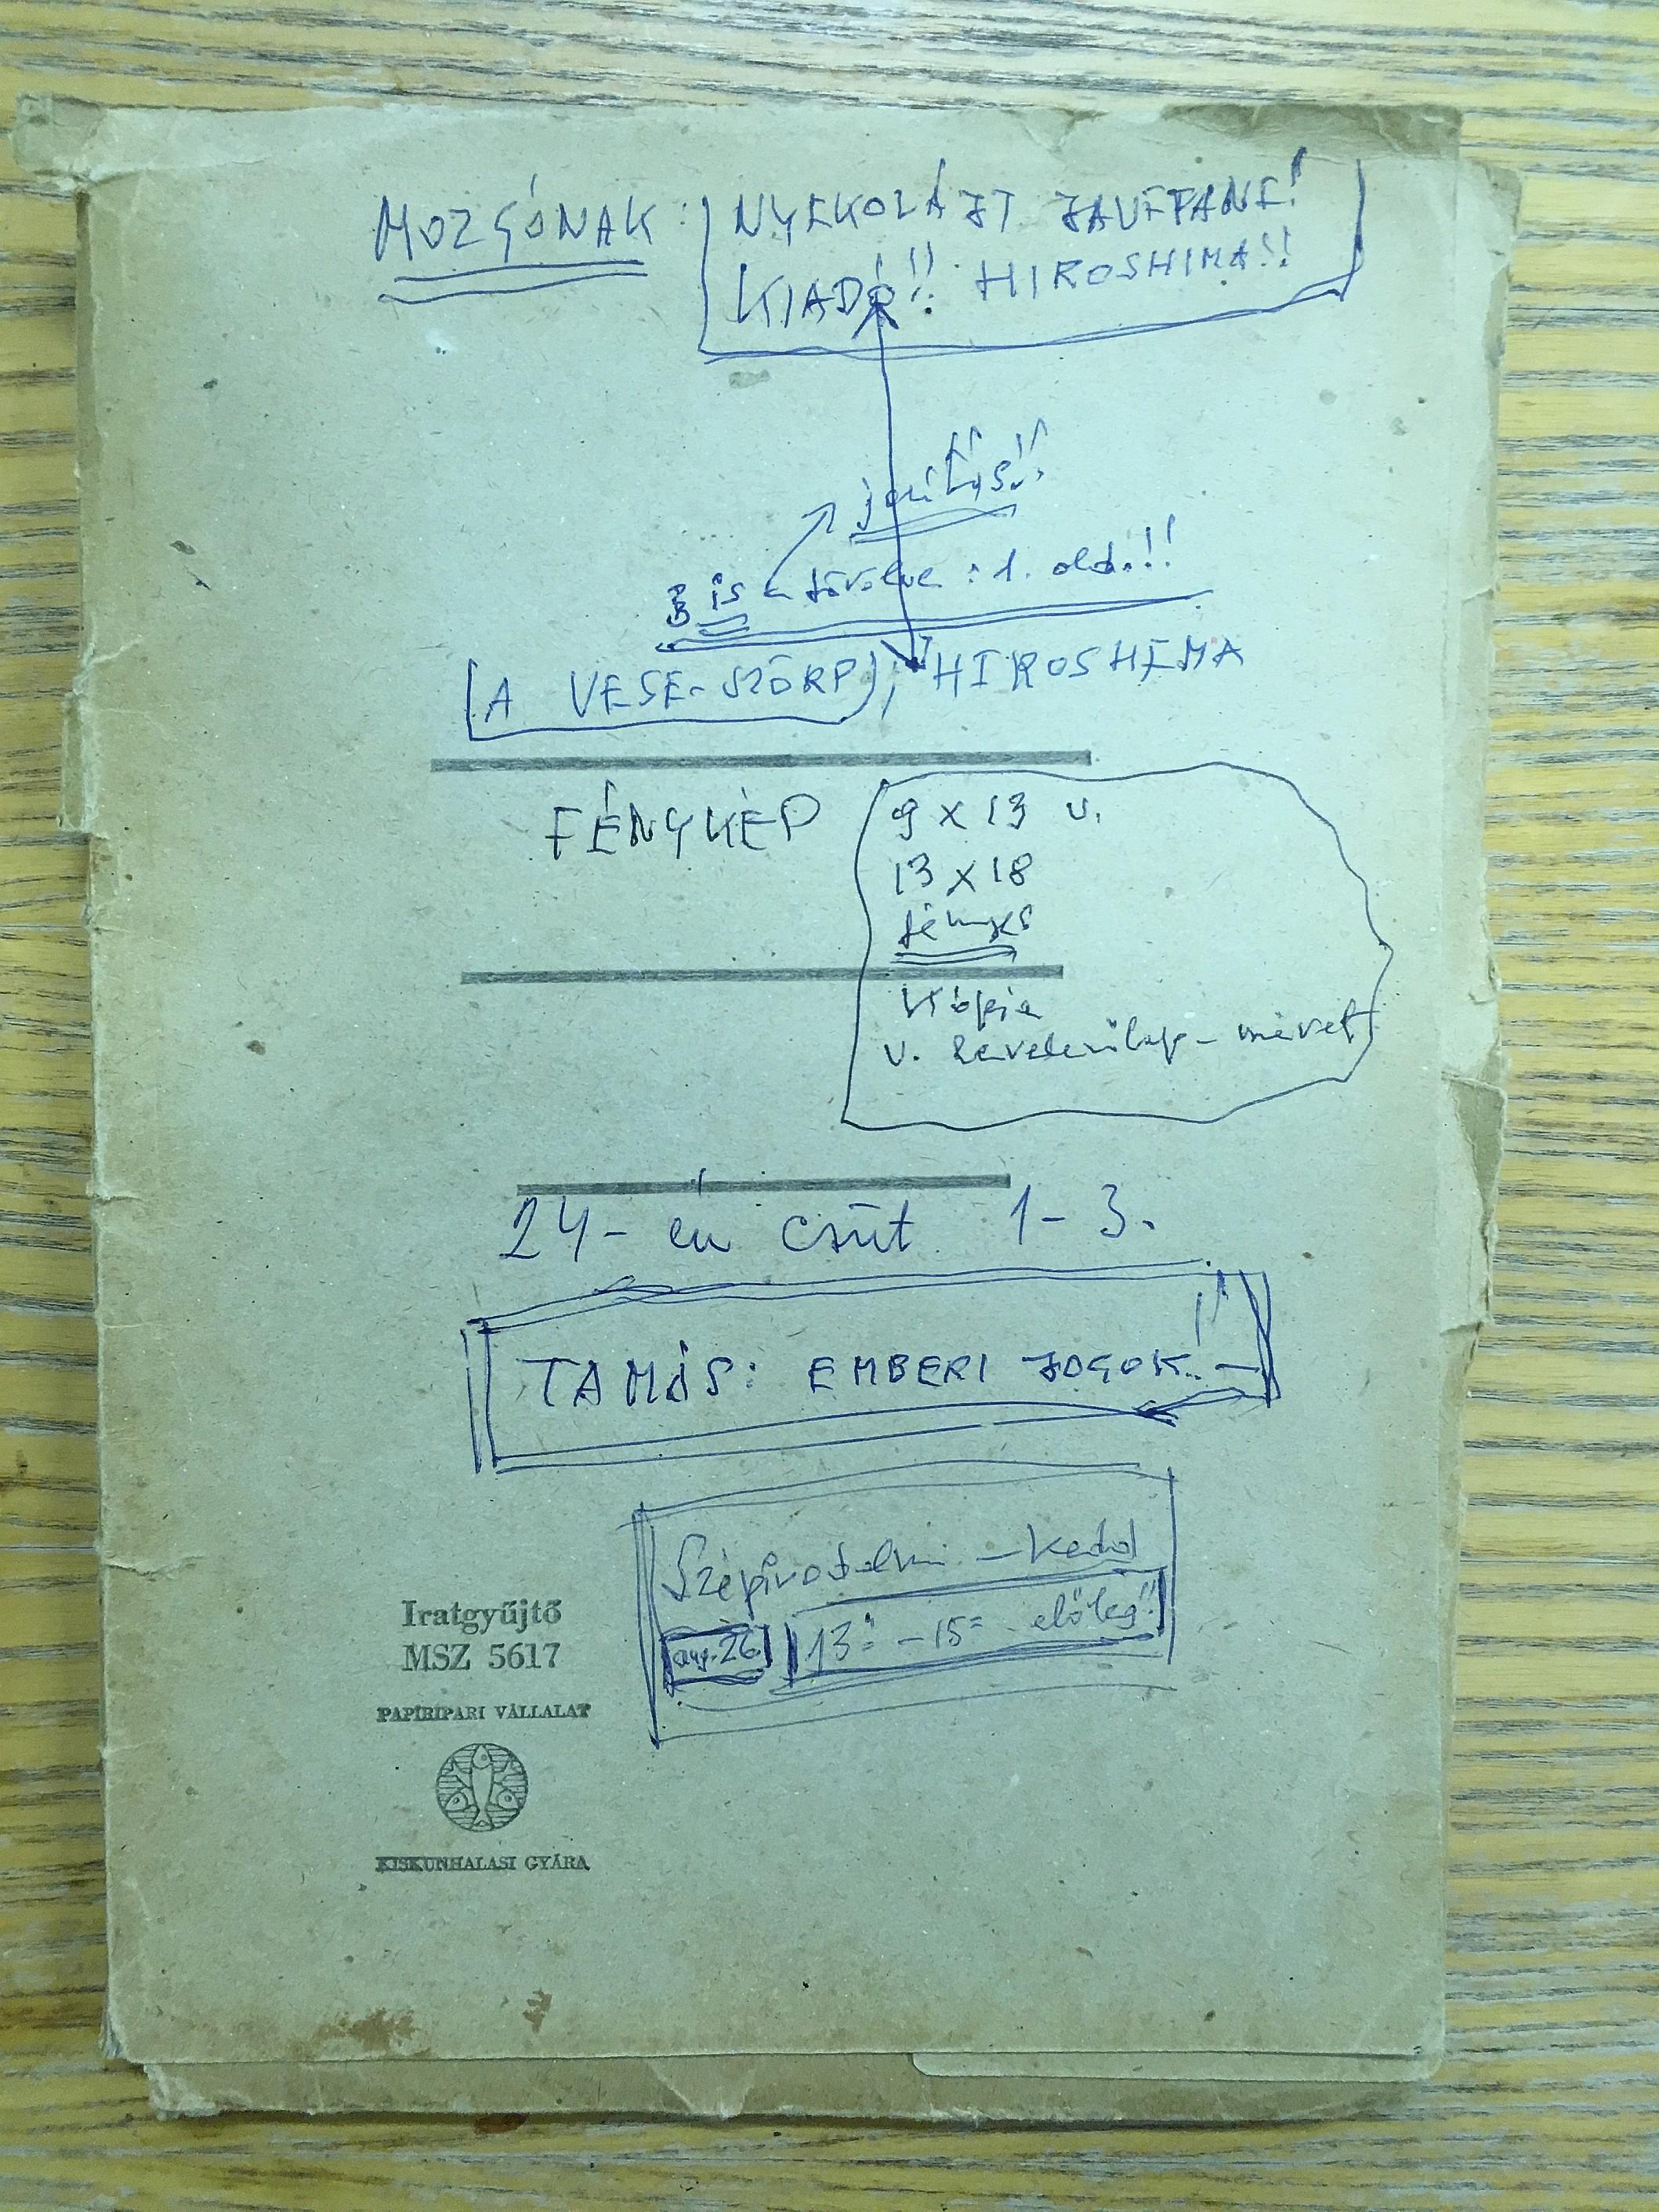 MOZGÓNAK: NYEKOLÁJT JAVÍTANI!
KIADÓ!! HIROSHIMA!!
javítás!!
is törölve: 1. old.!!
(A VESE-SZÖRP), HIROSHIMA
FÉNYKÉP
9 x 13 v.
13 x 18
fényké
kópia
v. levelezőlap-méret
24-én csüt. 1-3.
TAMÁS: EMBERI JOGOK!!
Szépirodalmi – kedd
aug. 26. 13= -15= előleg!!
Iratgyűjtő
MSZ 5617
PAPÍRIPARI VÁLLALAT
KISKUNHALASI GYÁRA